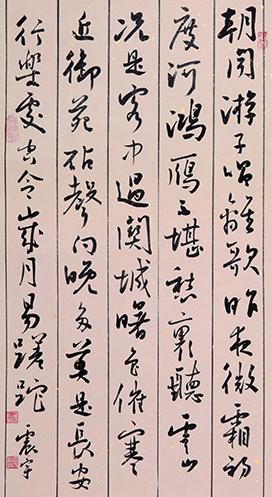 朝聞游子唱離歌昨夜微霜初
度河鴻鴈不堪愁裏聽雲山
況是客中過關城曙色催寒
近御苑砧聲向晚多莫是長安
行樂處空令歲月易蹉跎
震宇